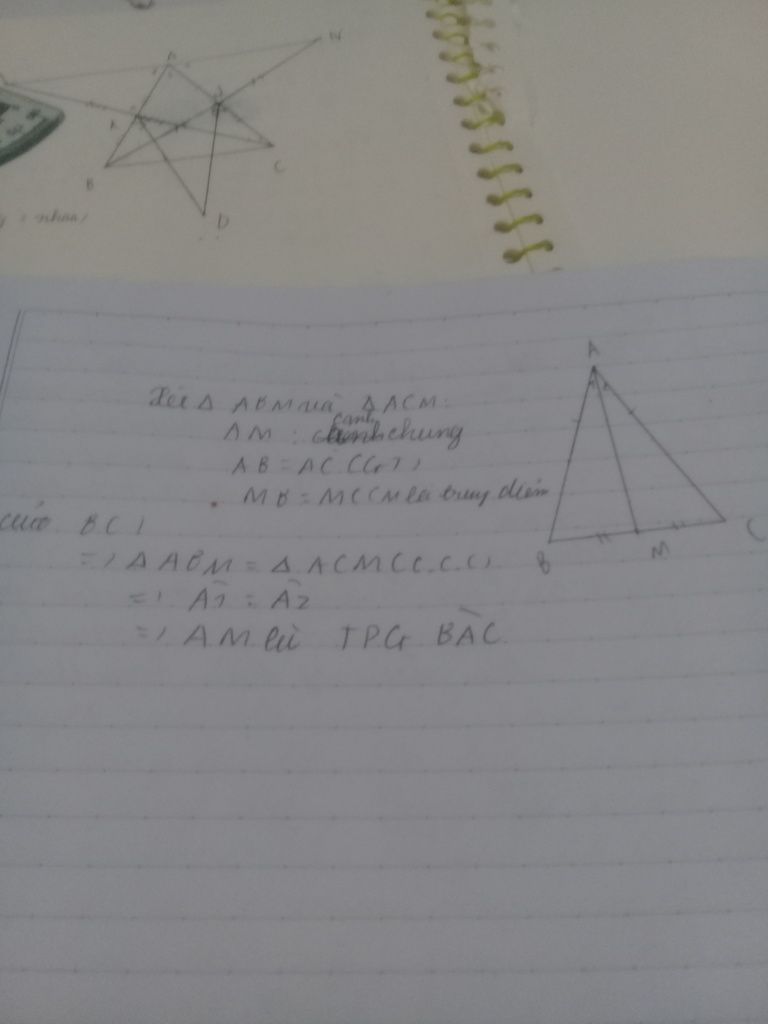 N
A
A
B
C
D
A
Xét Δ ABM và Δ ACM:
AM : cạnh chung
AB = AC (GT)
MB = MC (M là trung điểm
của BC)
=> Δ ABM = Δ ACM (C.C.C)
=> Â1 = Â2
=> AM là TPG BÂC.
B
M
C